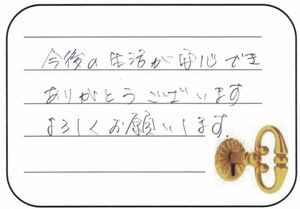 今後の生活が安心でき
ありがとうございます
よろしくお願いします。